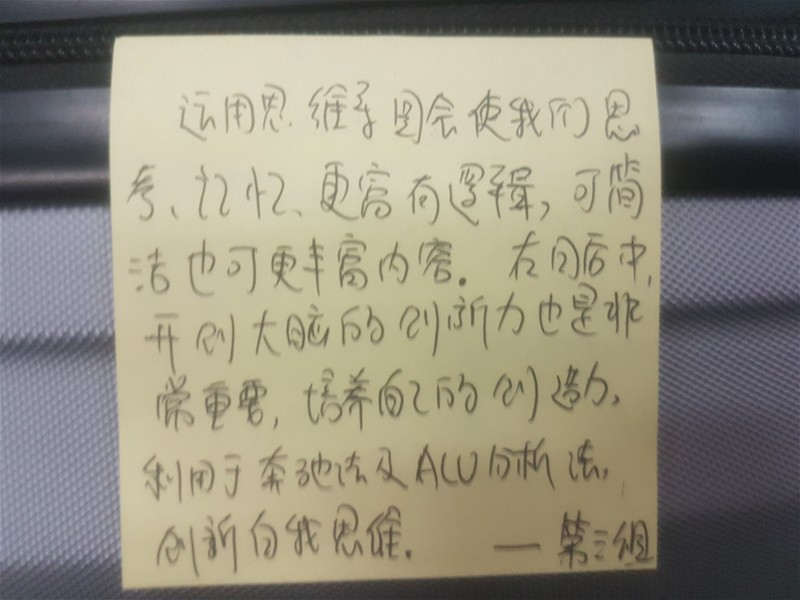 运用思维导图会使我们思
考、忆忆、更富有逻辑,可简
洁也可更丰富内容。在日后中,
开创大脑的创新力也是非
常重要,培养自己的创造力。
利用于奔驰法及ALU分析法,
创新自我思维。 — 第三组